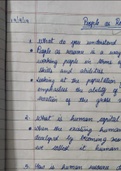 People as Re
1. What do you understand
• People as resource is a way
working people in terms of
skills and abilities
• Looking at the population
emphasises the ability of
creation of the gross
2. What is human capital
• When the existing human
developed by becoming more
we call it human
3. How is human resource d